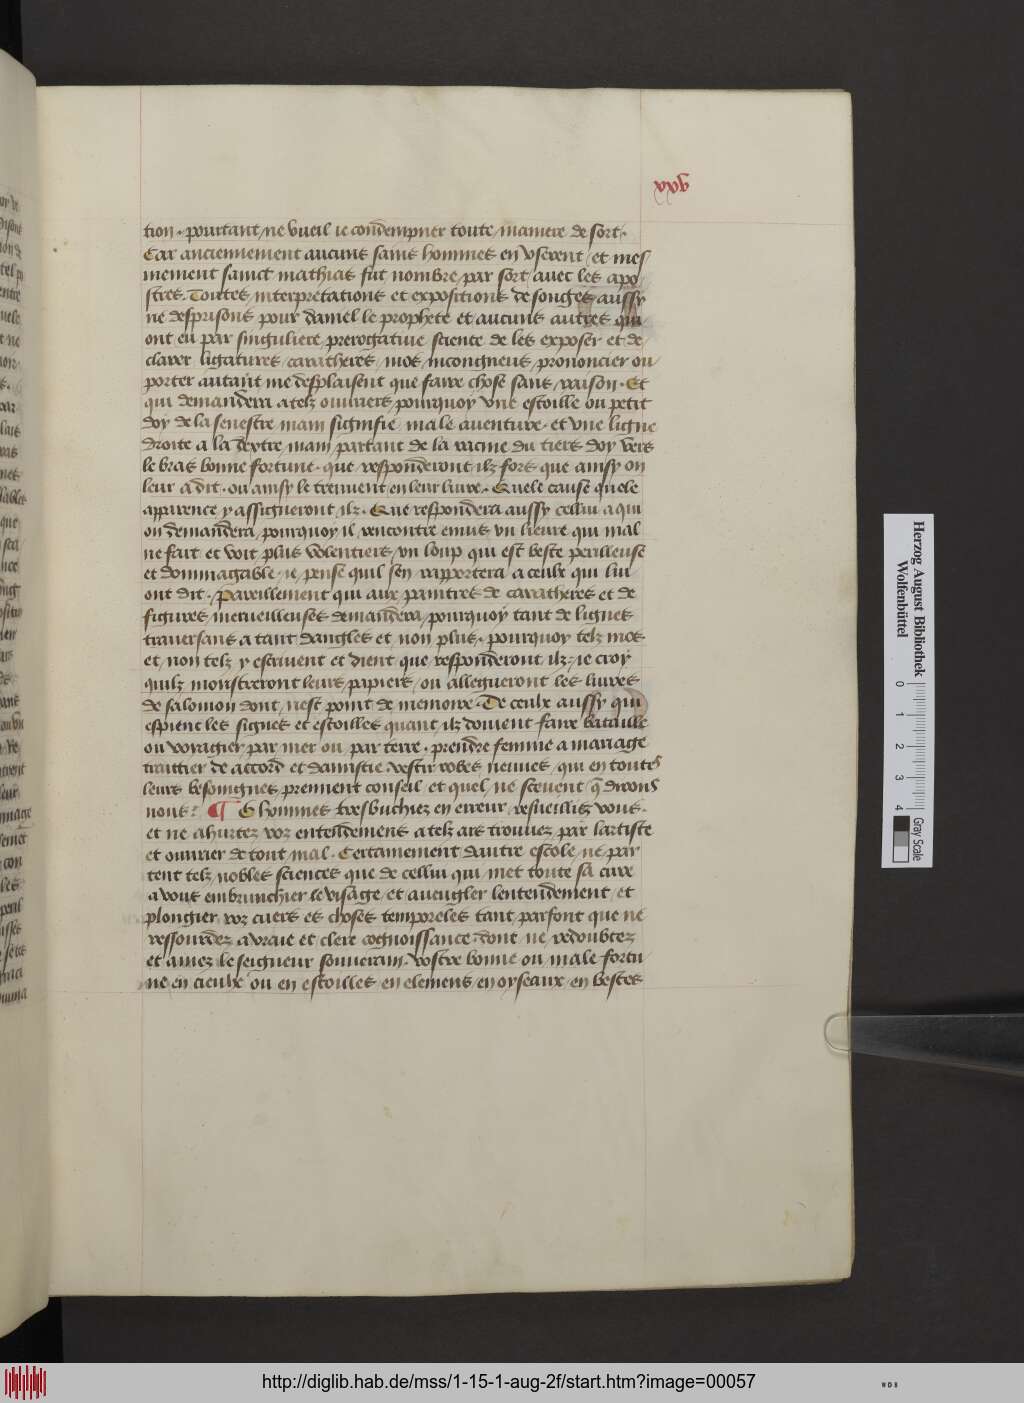 xxv
tion · pourtant ne vueil ie condempner toute maniere de sort ·
Car anciennement aucuns sains hommes en vserent / et mes
mement sainct mathias fut nombre par sort auec les apo
stres. Toutes interpretations et expositions de songes aussy
ne desprisons pour daniel le prophete et aucuns autres qui
ont eu par singuliere prerogatiue science de les exposer et de
clarer ligatures / caratheres / mos incongneus / prononcier ou
porter autant me desplaisent que faire chose sans raison · Et
qui demandera a telz ouuriers / pourquoy vne estoille ou petit
doy de la senestre main signifie male auenture · et vne ligne
droite a la dextre main partant de la racine du tiers doy vers
le bras bonne fortune · que responderont ilz fors que ainsy on
leur a dit · ou ainsy le treuuent en leur liure · Quele cause quele
apparence y assigneront ilz · Que respondera aussy cellui a qui
on demandera / pourquoy il rencontre enuis vn lieure qui mal
ne fait et voit plus volentiers vn loup qui est beste perilleuse
et dommagable · ie pense quil sen rapportera a ceulx qui lui
ont dit · Pareillement qui aux paintres de caratheres et de
figures merueilleuses demandera pourquoy tant de lignes
trauersans a tant dangles et non plus · pourquoy telz mos
et non telz y escriuent et dient que responderont ilz · ie croy
quilz monstreront leurs papiers / ou allegueront les liures
de salomon dont nest point de memoire · De ceulx aussy qui
espient les signes et estoilles quant ilz doiuent faire bataille
ou voyagier par mer ou par terre · prendre femme a mariage
traittier de accord et damistie vestir robes neuues / qui en toutes
leurs besoingnes prennent conseil et quel / ne sceuent q̃ dirons
nous ? ¶ O hommes tresbuchiez en erreur resueilliez vous ·
et ne ahurtez voz entendemens a telz ars trouuez par lartiste
et ouurier de tout mal · Certainement dautre escole ne par
tent telz nobles sciences que de cellui qui met toute sa cure
a vous embrunchier le visage / et aueugler lentendement / et
plongier voz cuers es choses temporeles tant parfont que ne
ressourdez a vraie et clere cognoissance · dont ne redoubtez
et amez le seigneur souuerain · vostre bonne ou male fortu
ne en cieulx ou en estoilles en elemens en oyseaux en bestes
Herzog August Bibliothek
Wolfenbüttel
0 1 2 3 4
Gray Scale
http://diglib.hab.de/mss/1-15-1-aug-2f/start.htm?image=00057